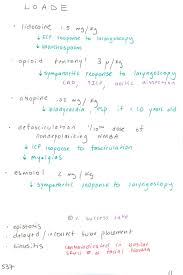 LOADE
· lidocaine 1.5 mg/kg
↓ICP response to laryngoscopy
↓bronchospasm
· opioid fentanyl 3 μ/kg
↓sympathetic response to laryngoscopy
CAD, ↑ICP, aortic dissection
· atropine .02 mg/kg
↓bradycardia, esp. if < 10 years old
· defasciculation 1/10th dose of
nondepolarizing NMBA
↓ICP response to fasciculation
↓myalgias
· esmolol 2 mg/kg
↓sympathetic response to laryngoscopy
success rate
· epistaxis
· delayed / incorrect tube placement
· sinusitis
contraindicated in basilar
skull or facial trauma